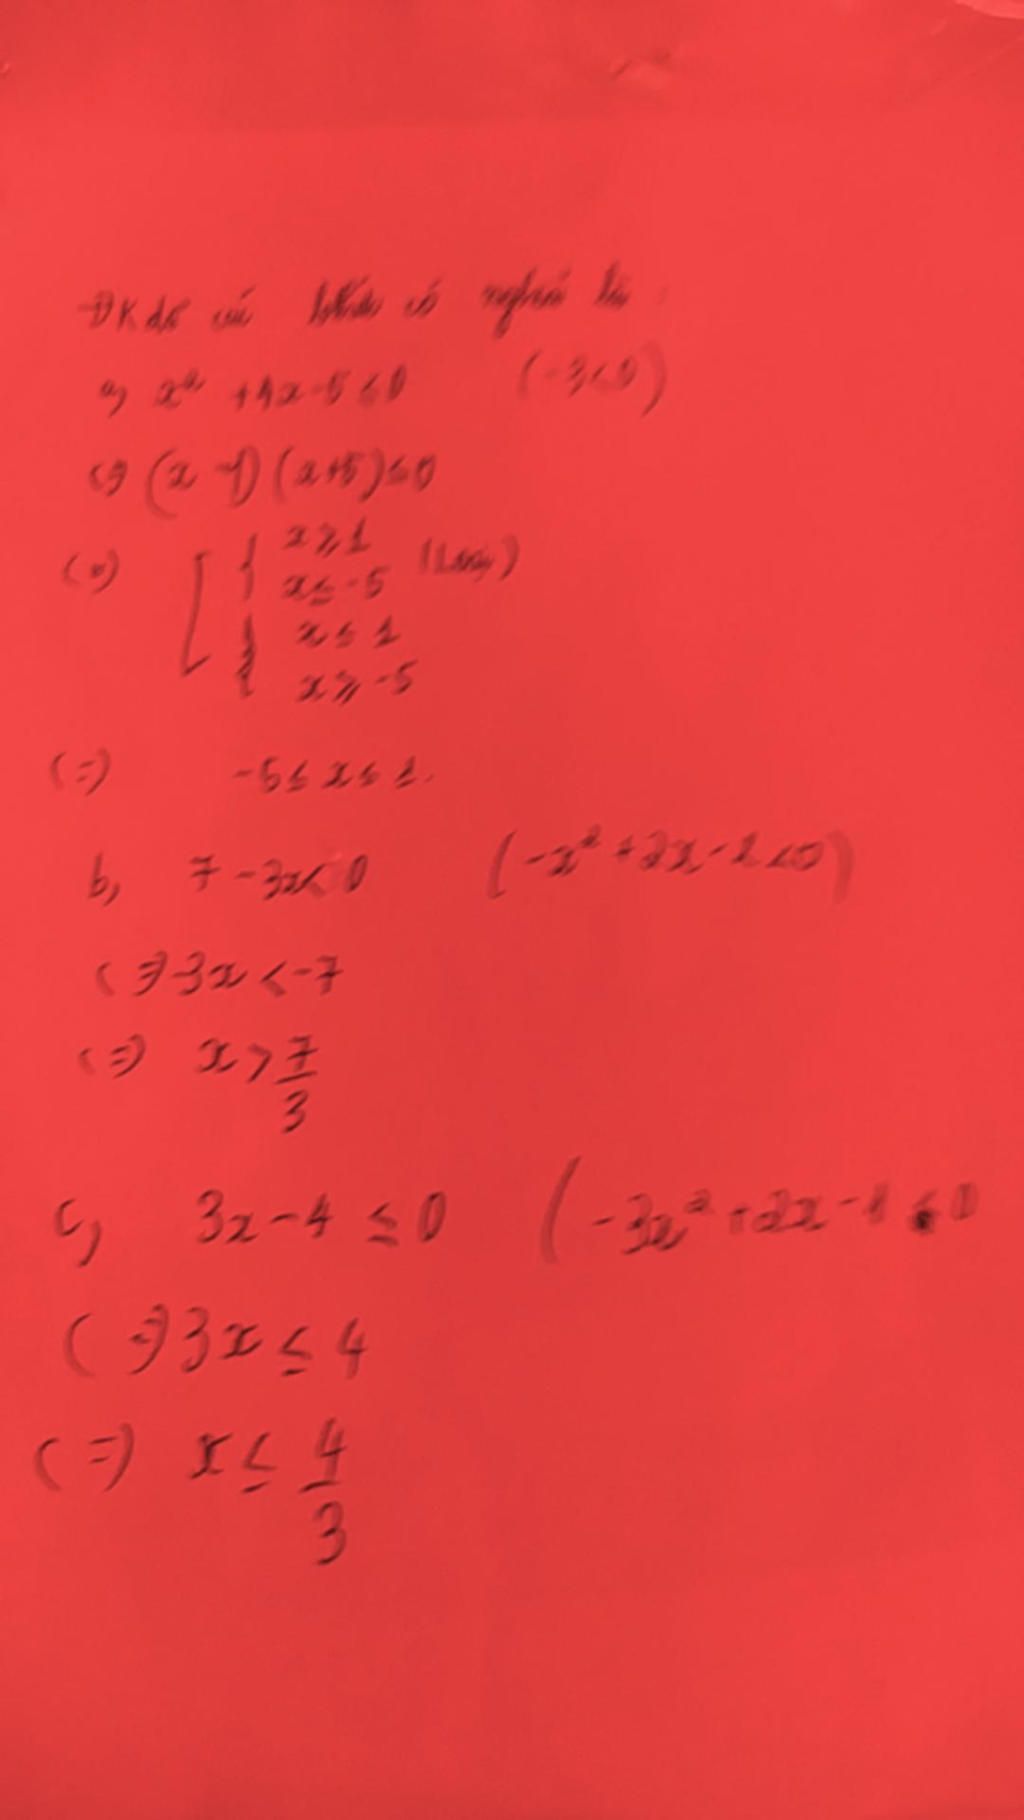 ĐK để các bthức có nghĩa là :
a, x² + 4x - 5 ≤ 0 (-3 < 0)
(=) (x - 1) (x + 5) ≤ 0
(=) [ { x ≥ 1
x ≤ -5 (Loại)
{ x ≤ 1
x ≥ -5
(=) -5 ≤ x ≤ 1.
b, 7 - 3x < 0 (-x² + 2x - 2 < 0)
(=) -3x < -7
(=) x > 7/3
c, 3x - 4 ≤ 0 (-3x² + 2x - 1 < 0
(=) 3x ≤ 4
(=) x ≤ 4/3